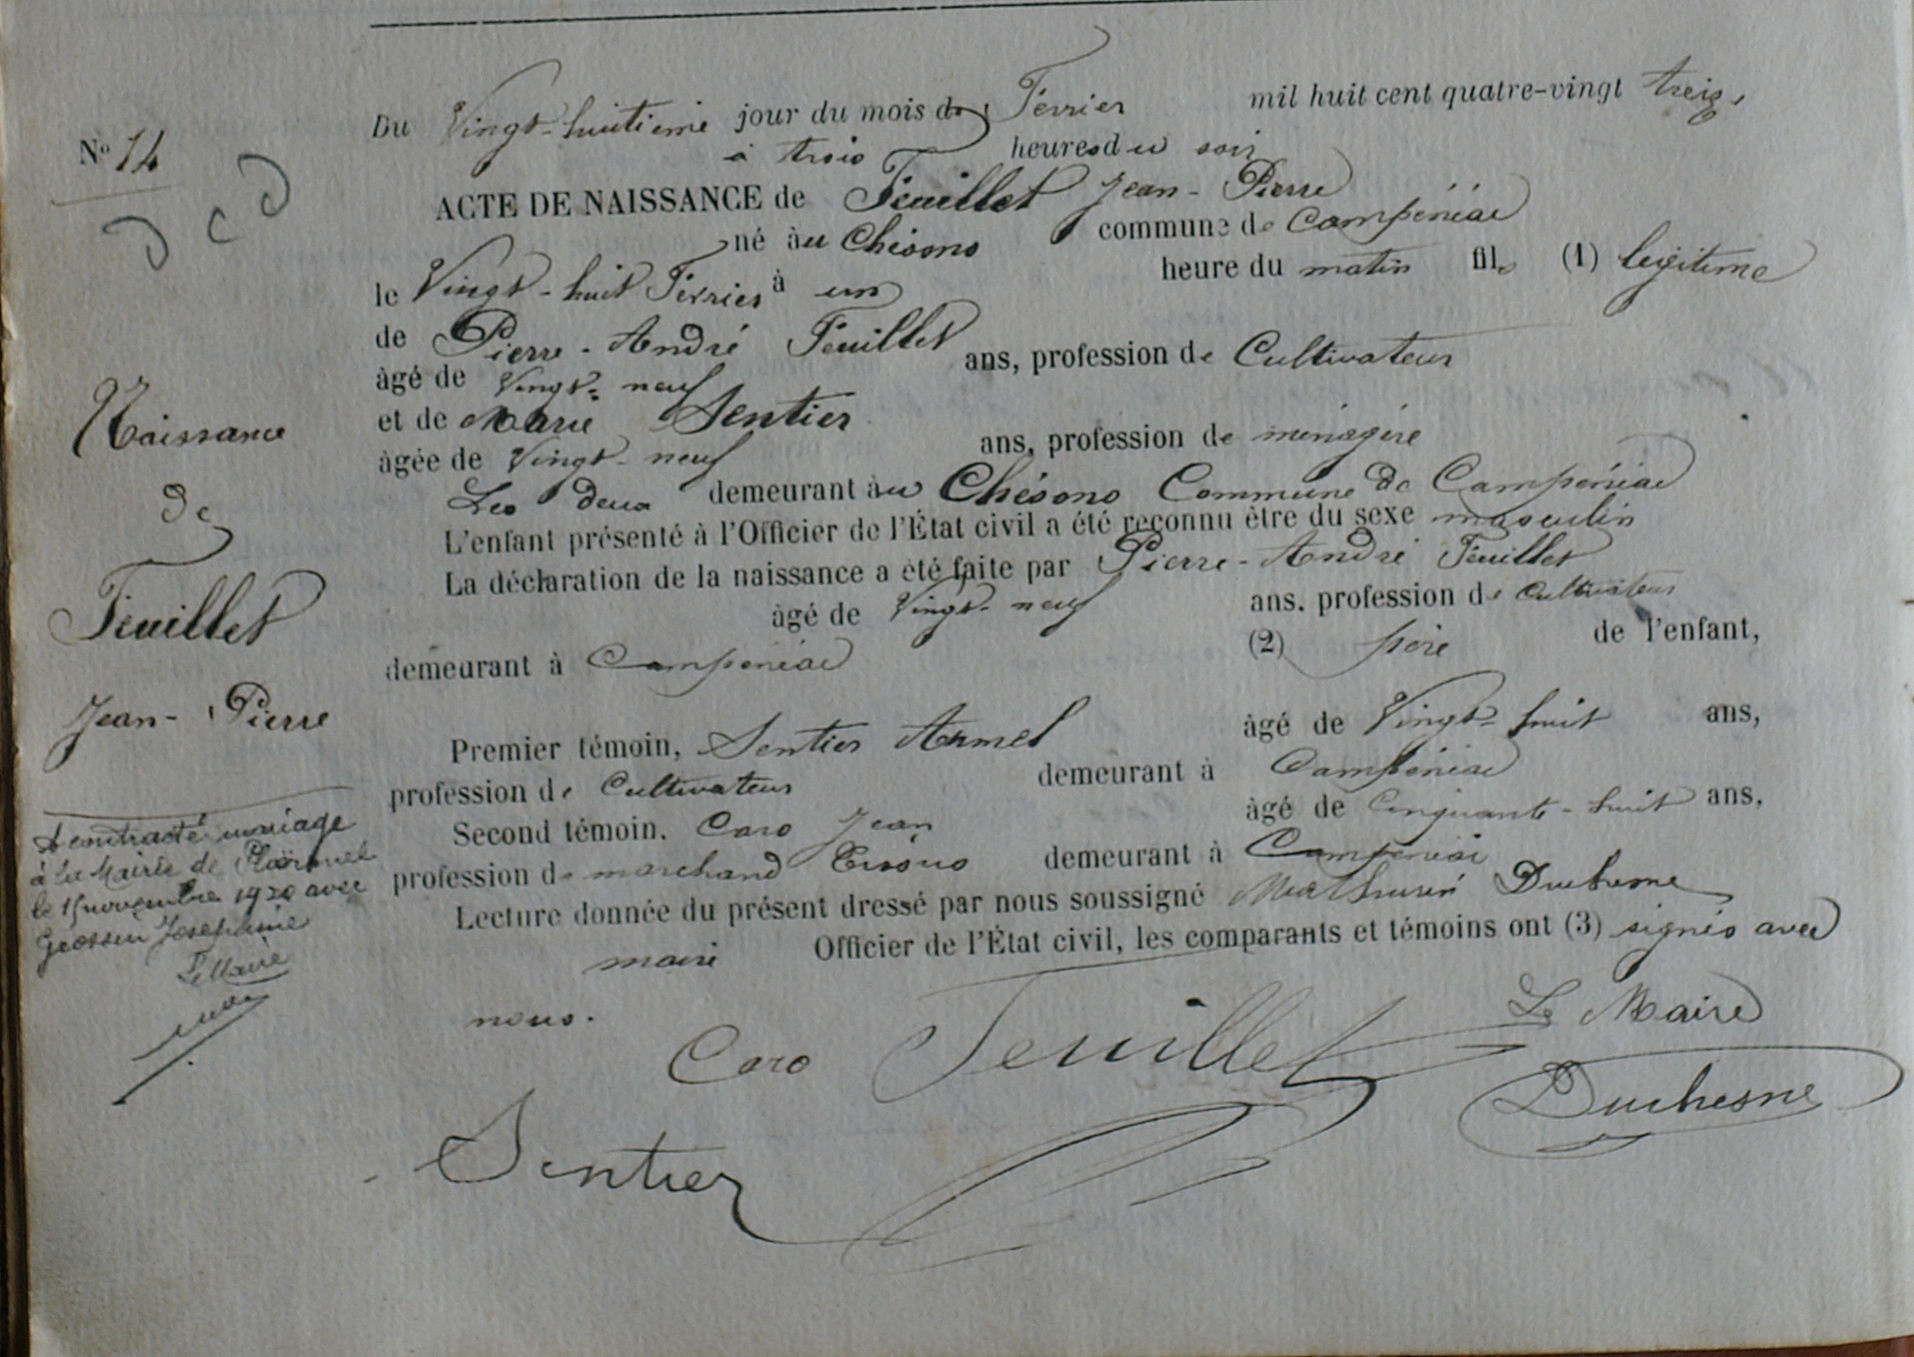 Du Vingt-huitième jour du mois de Février mil huit cent quatre-vingt treize
à trois heures du soir
N° 14
ACTE DE NAISSANCE de Feuillet Jean-Pierre
né au Chésono commune de Campénéac
le Vingt-huit Février à un heure du matin fils (1) légitime
de Pierre-André Feuillet
âgé de Vingt-neuf ans, profession de Cultivateur
et de Marie Sentier
âgée de Vingt-neuf ans, profession de ménagère
Les deux demeurant au Chésono Commune de Campénéac
L'enfant présenté à l'Officier de l'État civil a été reconnu être du sexe masculin
La déclaration de la naissance a été faite par Pierre-André Feuillet
âgé de Vingt-neuf ans, profession de Cultivateur
demeurant à Campénéac (2) père de l'enfant,
Premier témoin, Sentier Armel âgé de Vingt-huit ans,
profession de Cultivateur demeurant à Campénéac
Second témoin, Caro Jean âgé de Cinquante-huit ans,
profession de marchand demeurant à Campénéac
Lecture donnée du présent dressé par nous soussigné Mathurin Duchesne
maire Officier de l'État civil, les comparants et témoins ont (3) signés avec
nous.
Le Maire
Caro Feuillet
Duchesne
Sentier
Naissance
de
Feuillet
Jean-Pierre
A contracté mariage
à la Mairie de Ploërmel
le 15 novembre 1920 avec
Josephine
Le Maire